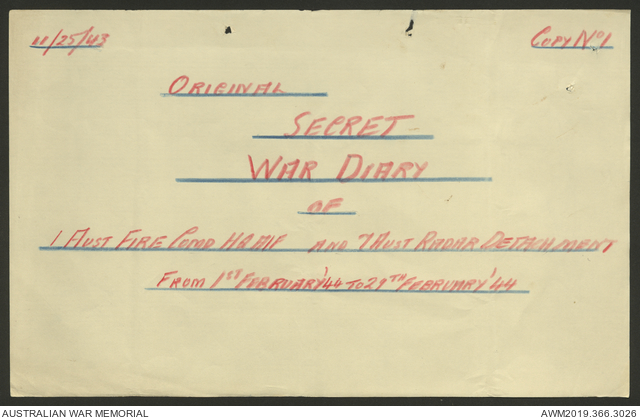 11/25/43
COPY No 1
ORIGINAL
SECRET
WAR DIARY
OF
1 AUST FIRE COMD HQ AIF AND 7 AUST RADAR DETACHMENT
FROM 1ST FEBRUARY '44 TO 29TH FEBRUARY '44
AUSTRALIAN WAR MEMORIAL
AWM2019.366.3026